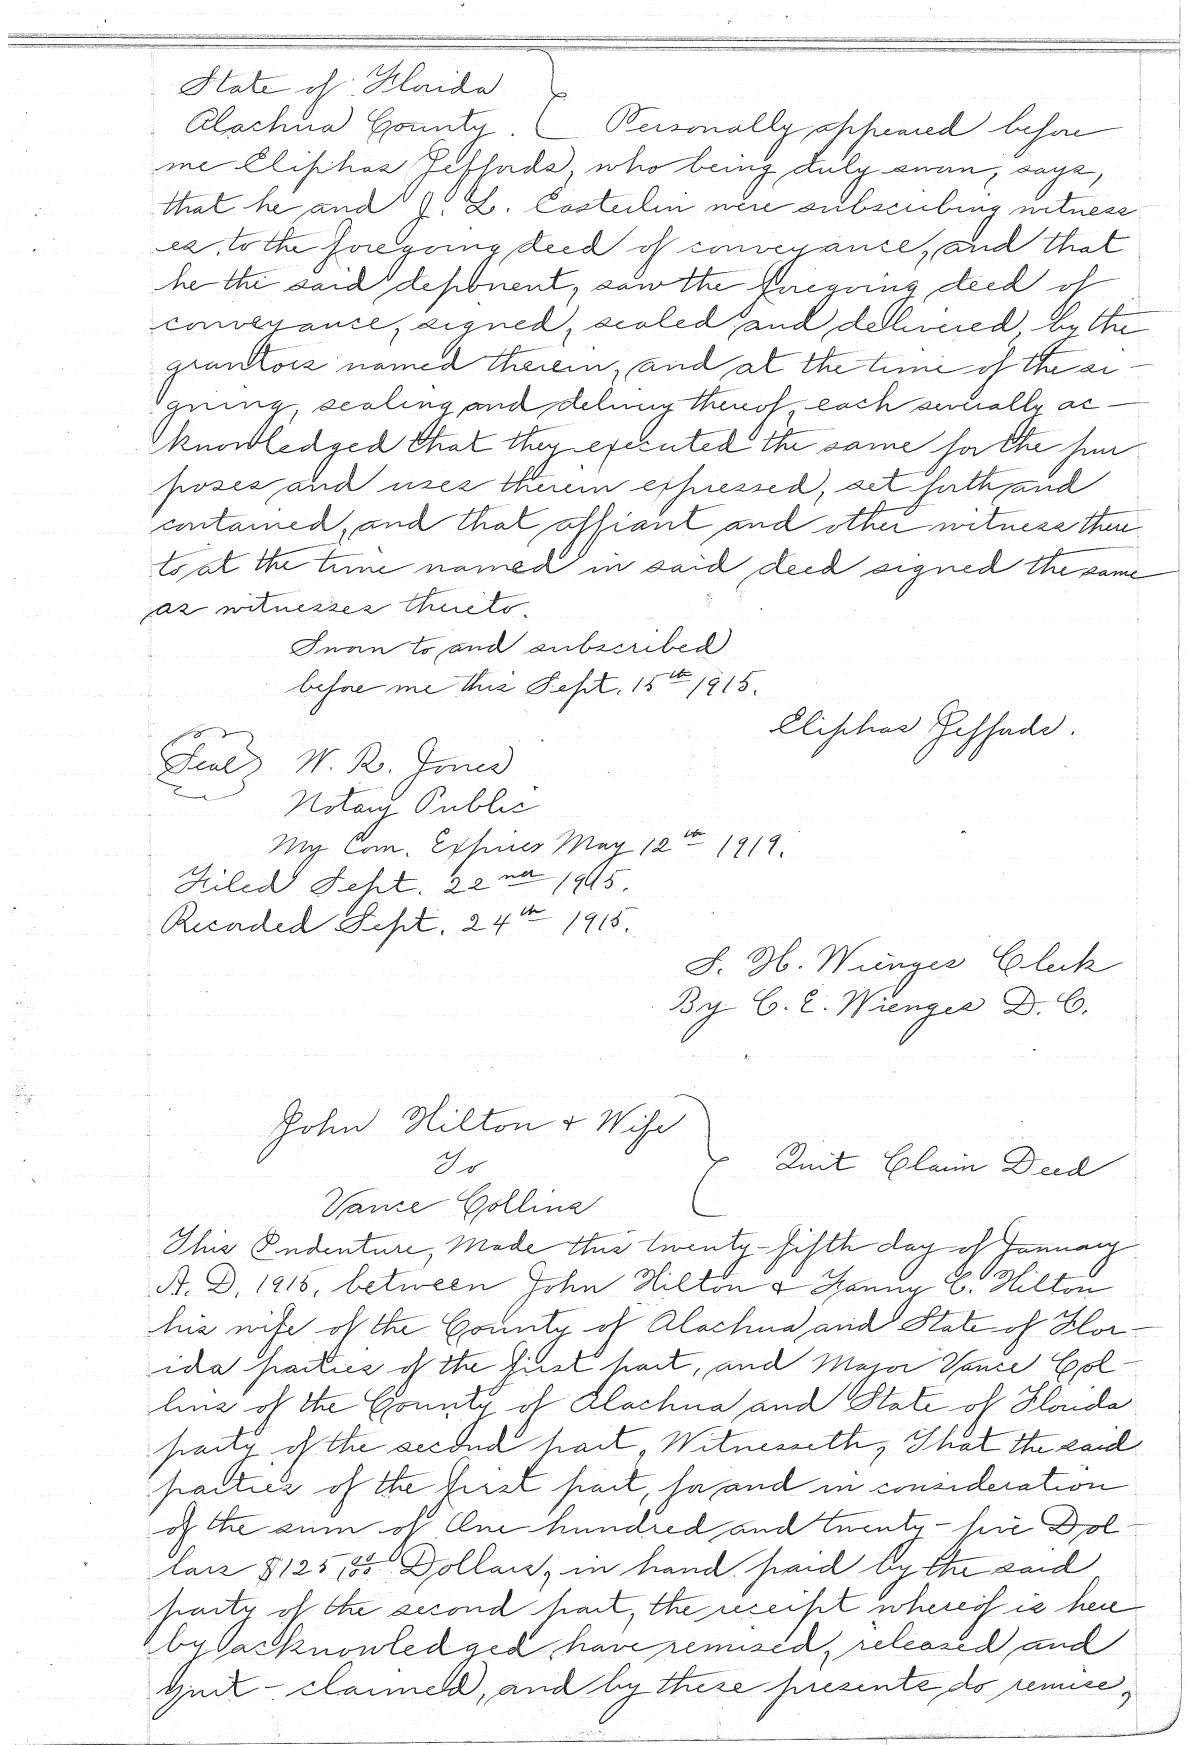 State of Florida
Alachua County. Personally appeared before
me Eliphas Jeffords, who being duly sworn, says,
that he and J. L. Easterlin were subscribing witness
es, to the foregoing deed of conveyance, and that
he the said deponent, saw the foregoing deed of
conveyance, signed, sealed and delivered, by the
grantors named therein, and at the time of the si-
gning, sealing and delivery thereof, each severally ac-
knowledged that they executed the same for the pur
poses and uses therein expressed, set forth and
contained, and that affiant and other witness there
to at the time named in said deed signed the same
as witnesses thereto.
Sworn to and subscribed
before me this Sept. 15th 1915.
Eliphas Jeffords.
Seal W. R. Jones
Notary Public
My Com. Expires May 12th 1919.
Filed Sept. 22nd 1915.
Recorded Sept. 24th 1915.
S. H. Wienges Clerk
By C. E. Wienges D. C.
John Hilton & Wife
To Quit Claim Deed
Vance Collins
This Indenture, Made this twenty-fifth day of January
A. D. 1915, between John Hilton & Fanny C. Hilton
his wife of the County of Alachua and State of Flor-
ida parties of the first part, and Major Vance Col-
lins of the County of Alachua and State of Florida
party of the second part, Witnesseth, That the said
parties of the first part, for and in consideration
of the sum of One hundred and twenty-five Dol-
lars $125,00 Dollars, in hand paid by the said
party of the second part, the receipt whereof is here
by acknowledged have remised, released and
quit-claimed, and by these presents do remise,